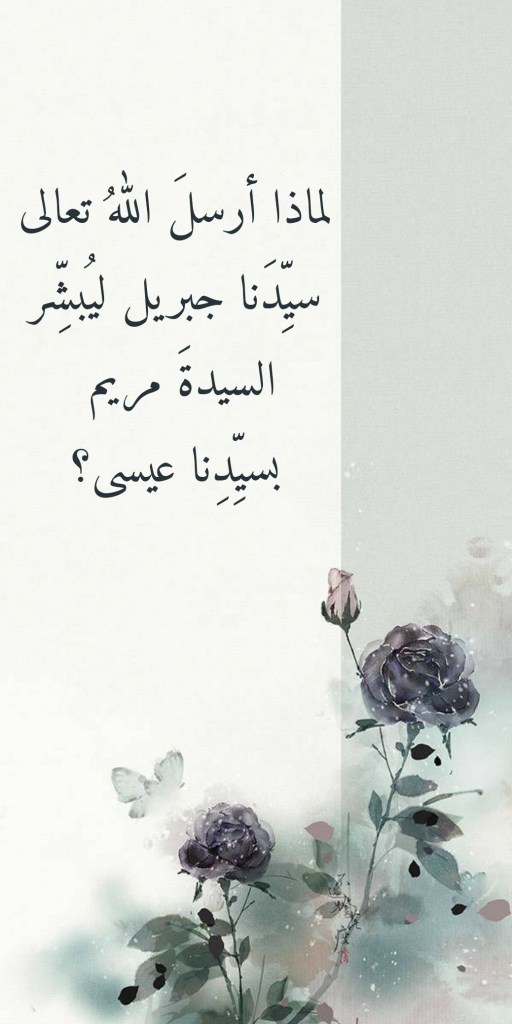 لماذا أرسلَ اللهُ تعالى
سيِّدَنا جبريل ليُبشِّر
السيدةَ مريم
بسيِّدِنا عيسى؟